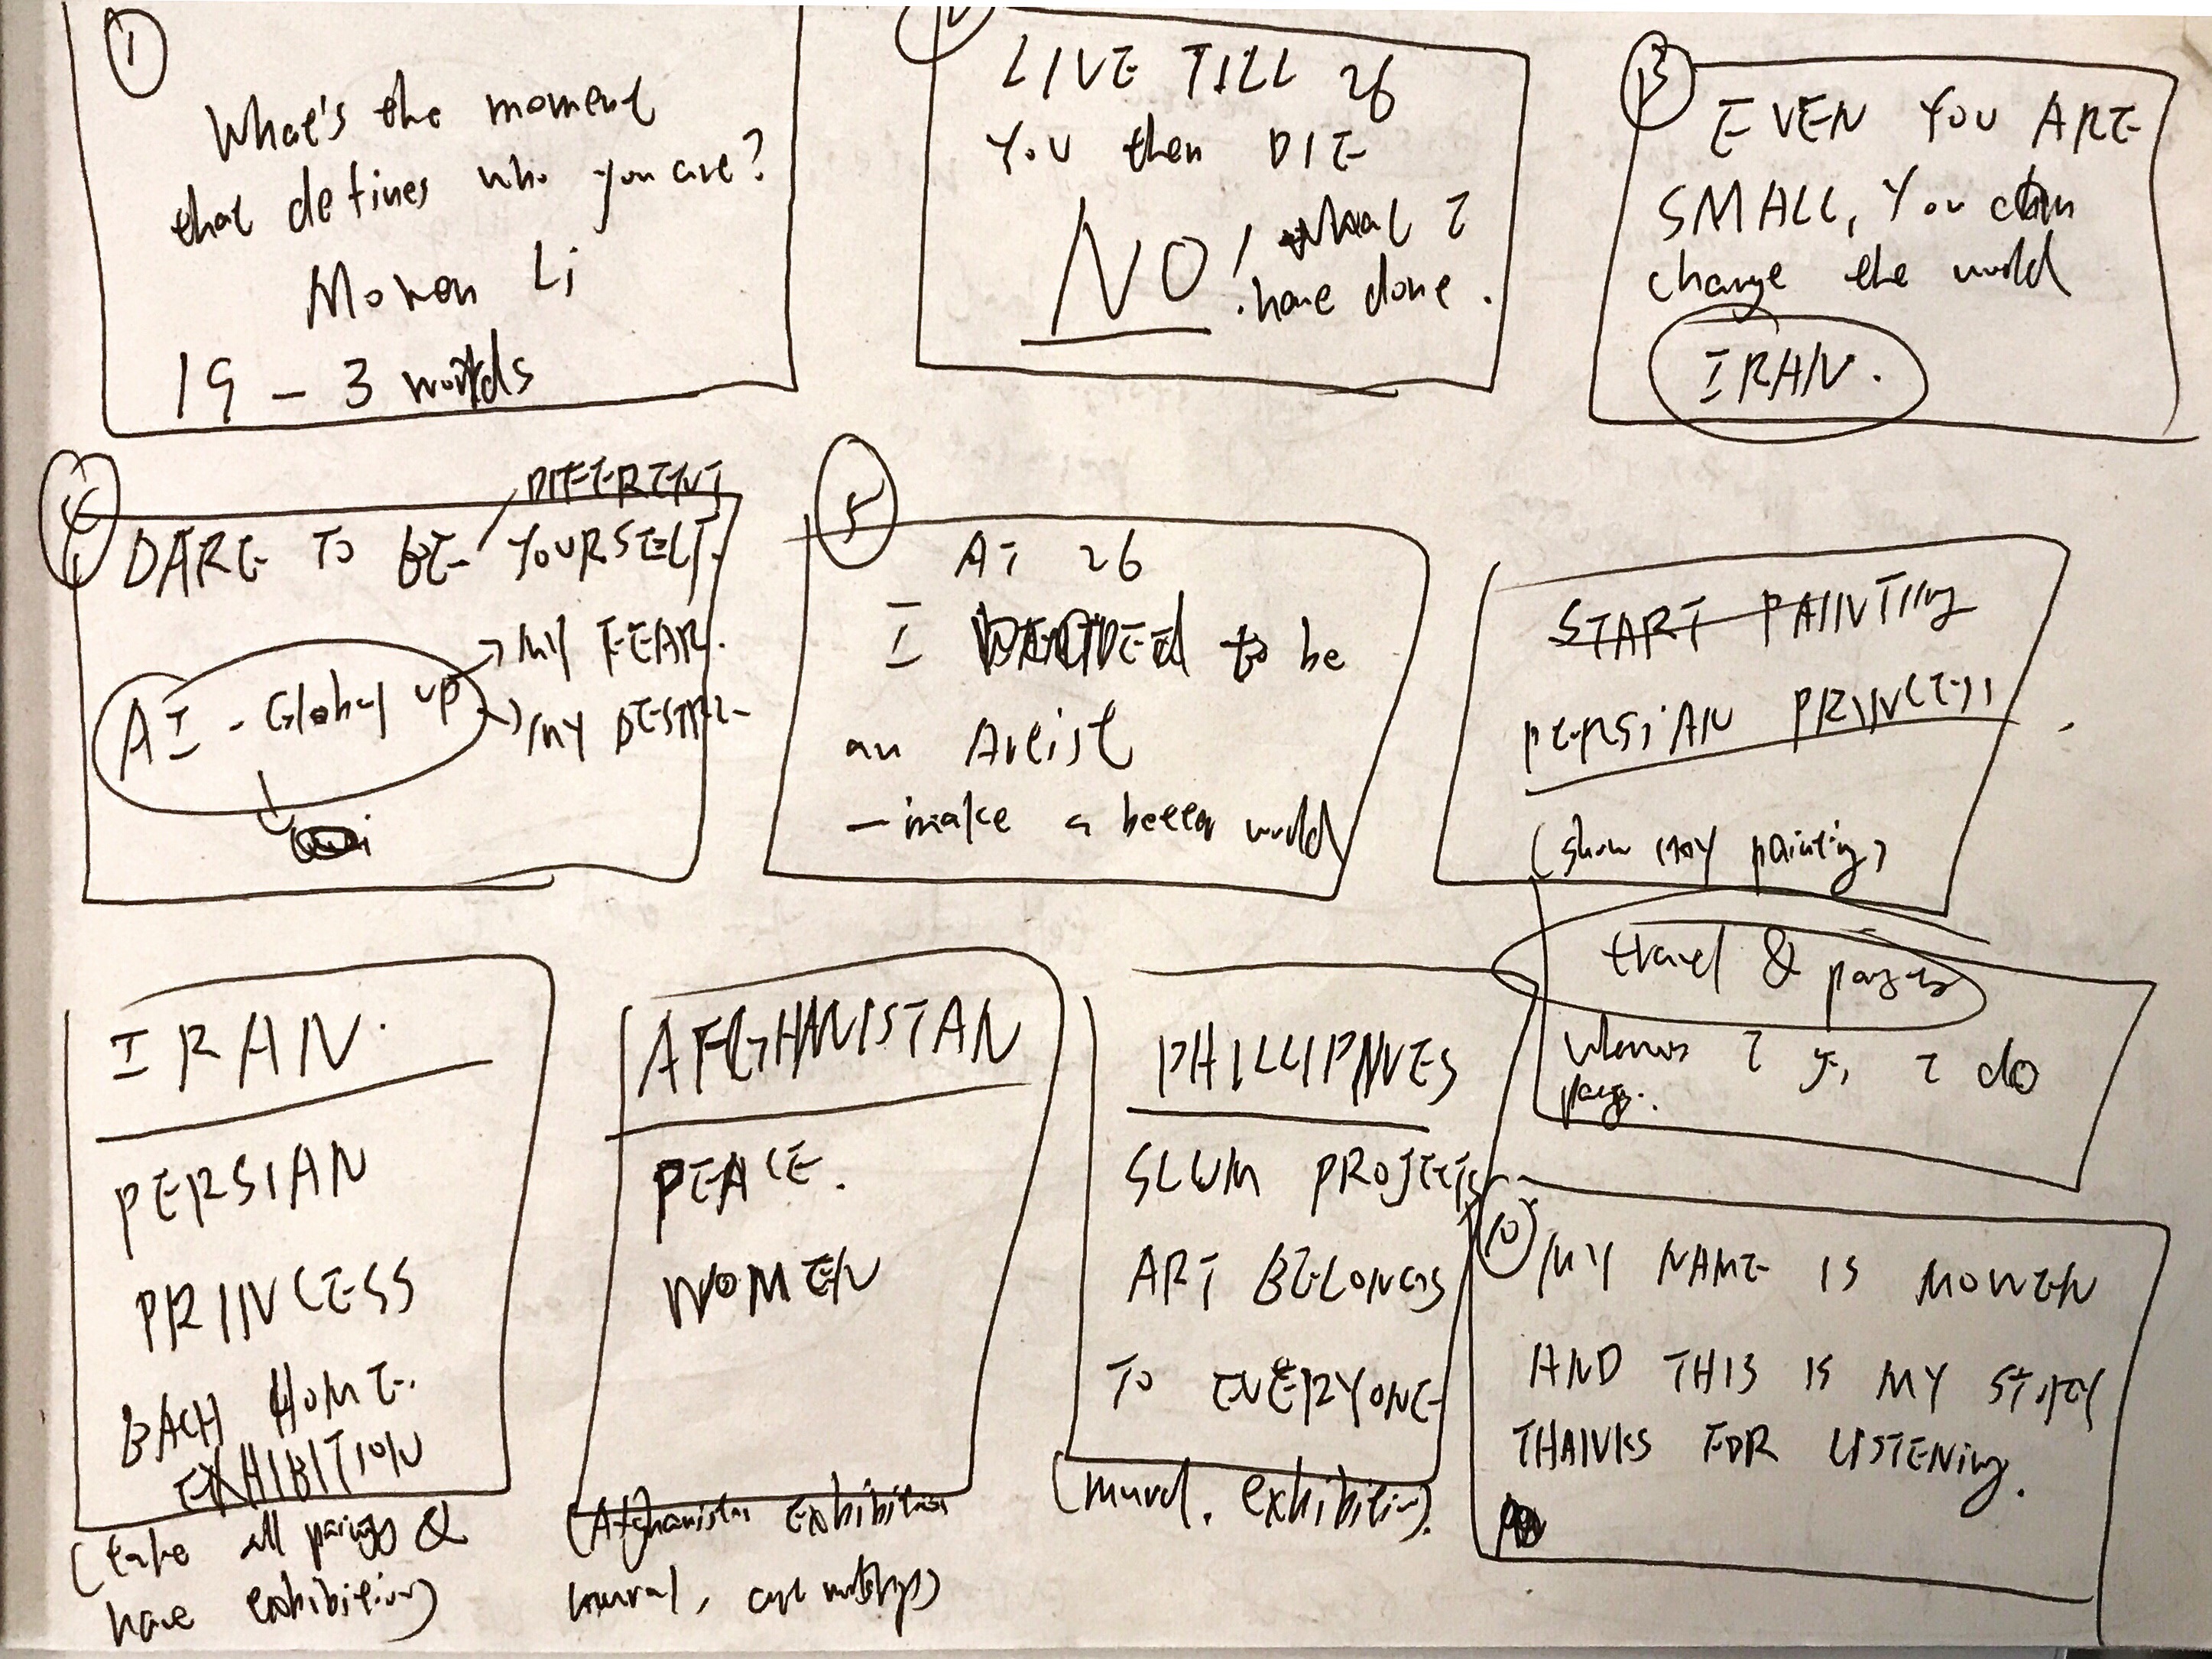 1
What's the moment
that defines who you are?
Mowen Li
19 - 3 words
2
LIVE TILL 26
YOU then DIE
NO! what I
have done.
3
EVEN YOU ARE
SMALL, YOU can
change the world
IRAN.
4
DIFFERENT
DARE TO BE YOURSELF.
→ MY FEAR.
AI - Global up
→ MY DESIRE
5
AT 26
I to be
an Artist
- make a better world
START PAINTING
PERSIAN PRINCESS
(show my painting)
IRAN.
PERSIAN
PRINCESS
BACK HOME.
EXHIBITION
(take all &
have exhibition)
AFGHANISTAN
PEACE.
WOMEN
(Afghanistan Exhibition
mural,
PHILLIPNVES
SLUM PROJECTS
ART BELONGS
TO EVERYONE
(mural. exhibition).
travel &
I I do
10
MY NAME IS MOWEN
AND THIS IS MY STORY
THANKS FOR LISTENING.